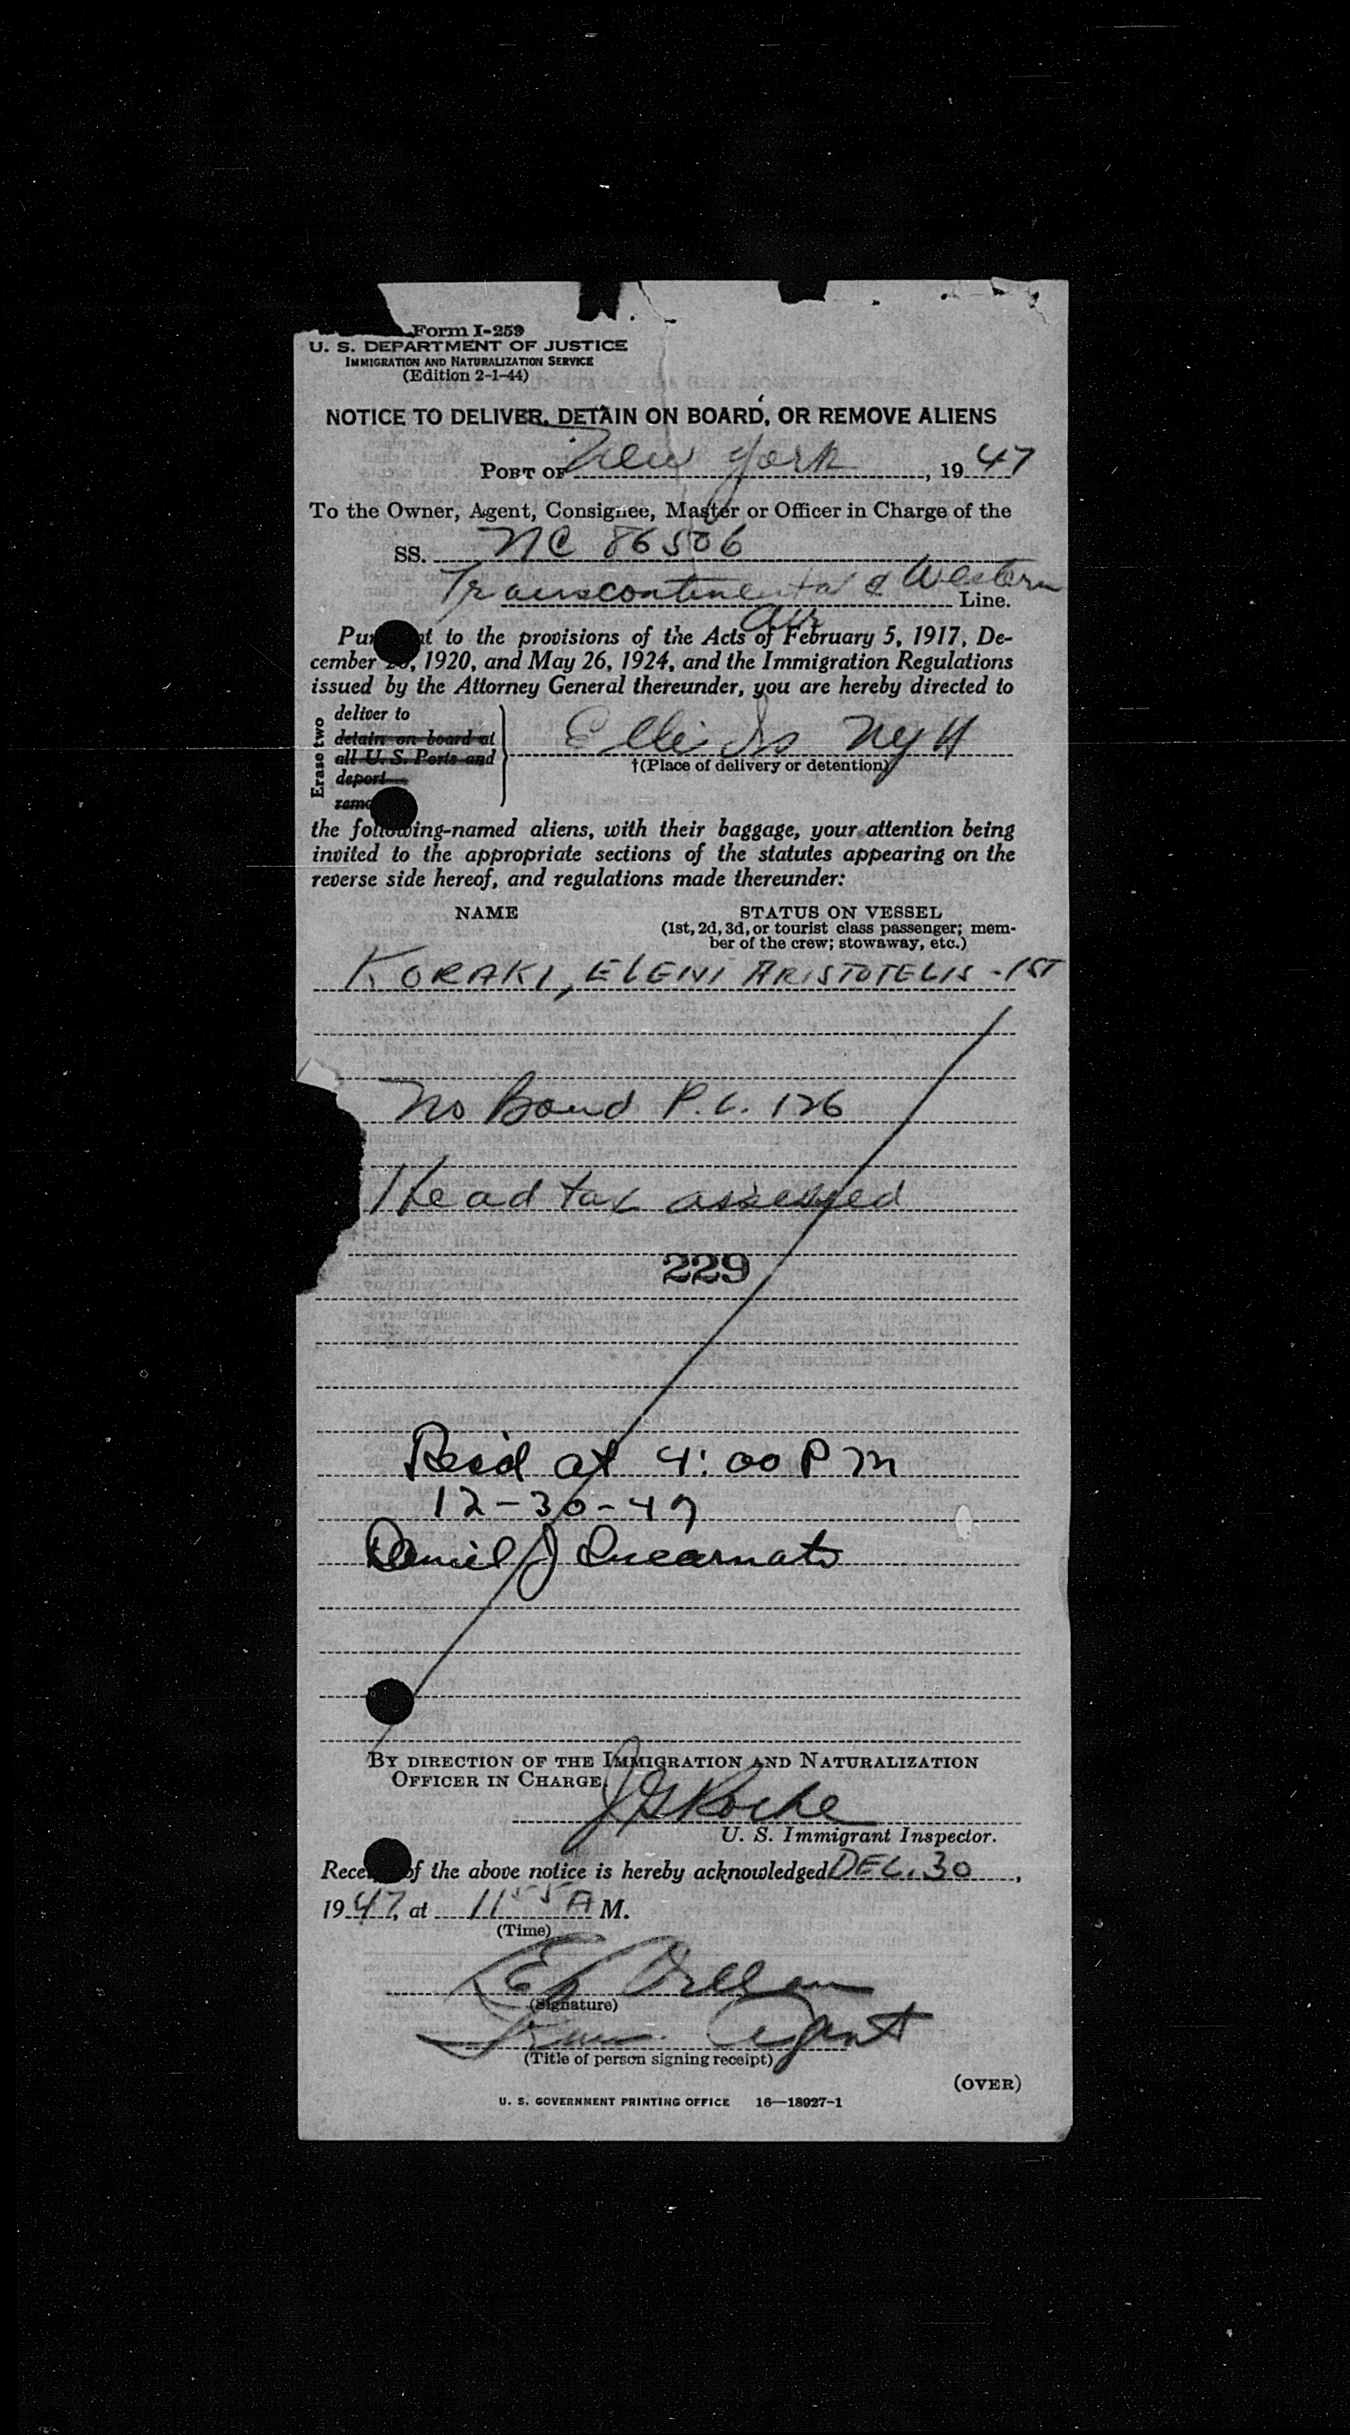 Form I-259
U. S. DEPARTMENT OF JUSTICE
IMMIGRATION AND NATURALIZATION SERVICE
(Edition 2-1-44)
NOTICE TO DELIVER, DETAIN ON BOARD, OR REMOVE ALIENS
PORT OF New York, 1947
To the Owner, Agent, Consignee, Master or Officer in Charge of the
SS. NC 86506
Transcontinental & Western
Air Line.
to the provisions of the Acts of February 5, 1917, De-
cember , 1920, and May 26, 1924, and the Immigration Regulations
issued by the Attorney General thereunder, you are hereby directed to
Erase two
deliver to
detain on board at
all U. S. Ports and
deport
Ellis Is NYH
†(Place of delivery or detention)
the following-named aliens, with their baggage, your attention being
invited to the appropriate sections of the statutes appearing on the
reverse side hereof, and regulations made thereunder:
NAME STATUS ON VESSEL
(1st, 2d, 3d, or tourist class passenger; mem-
ber of the crew; stowaway, etc.)
KORAKI, ELENI ARISTOTELIS - 1ST
No Bond P.C. 126
Head tax assessed
229
Rec'd at 4:00 PM
12-30-47
Daniel J Incarnato
BY DIRECTION OF THE IMMIGRATION AND NATURALIZATION
OFFICER IN CHARGE.
J G Roche
U. S. Immigrant Inspector.
of the above notice is hereby acknowledged DEC. 30,
1947, at 11 55 A M.
(Time)
(Signature)
Agent
(Title of person signing receipt)
(OVER)
U. S. GOVERNMENT PRINTING OFFICE 16—18927-1